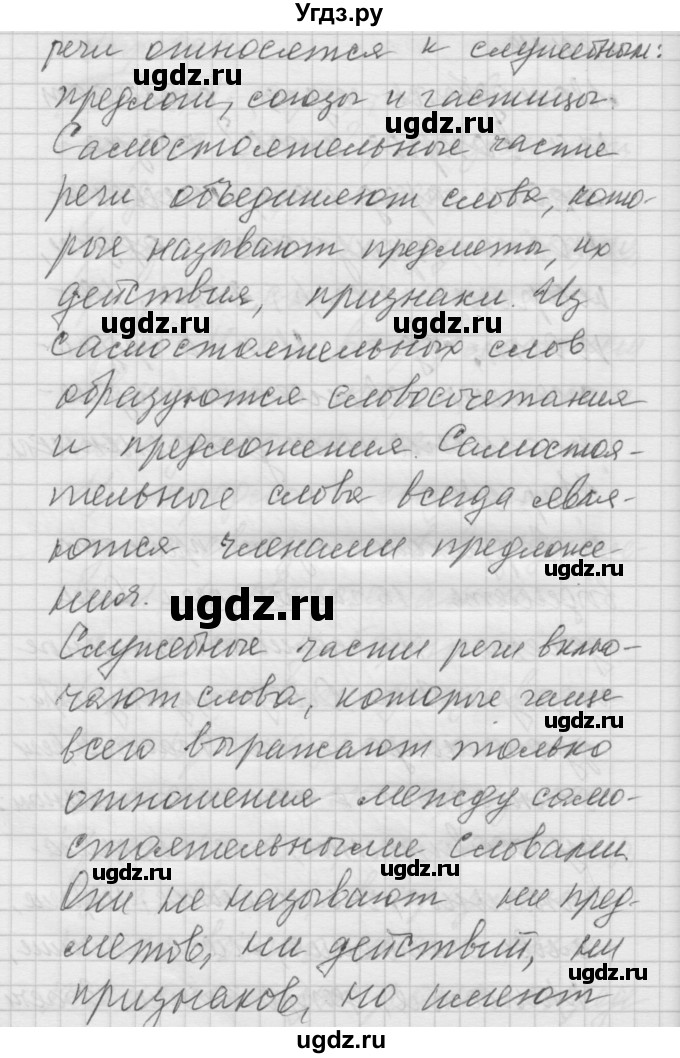 Угдз.ру
речи относятся к служебным:
ugdz.ru
ugdz.ru
предлоги, союзы и частицы.
ugdz.ru
Самостоятельные части
речи объединяют слова, кото-
рые называют предметы, их
действия, признаки. Из
ugdz.ru
ugdz.ru
самостоятельных слов
образуются словосочетания
и предложения. Самостоя-
тельные слова всегда явля-
ются членами предложе-
ugdz.ru
ния.
ugdz.ru
Служебные части речи вклю-
чают слова, которые чаще
ugdz.ru
всего выражают только
отношения между само-
стоятельными словами.
ugdz.ru
ugdz.ru
Они не называют ни пред-
метов, ни действий, ни
ugdz.ru
признаков, но имеют
ugdz.ru